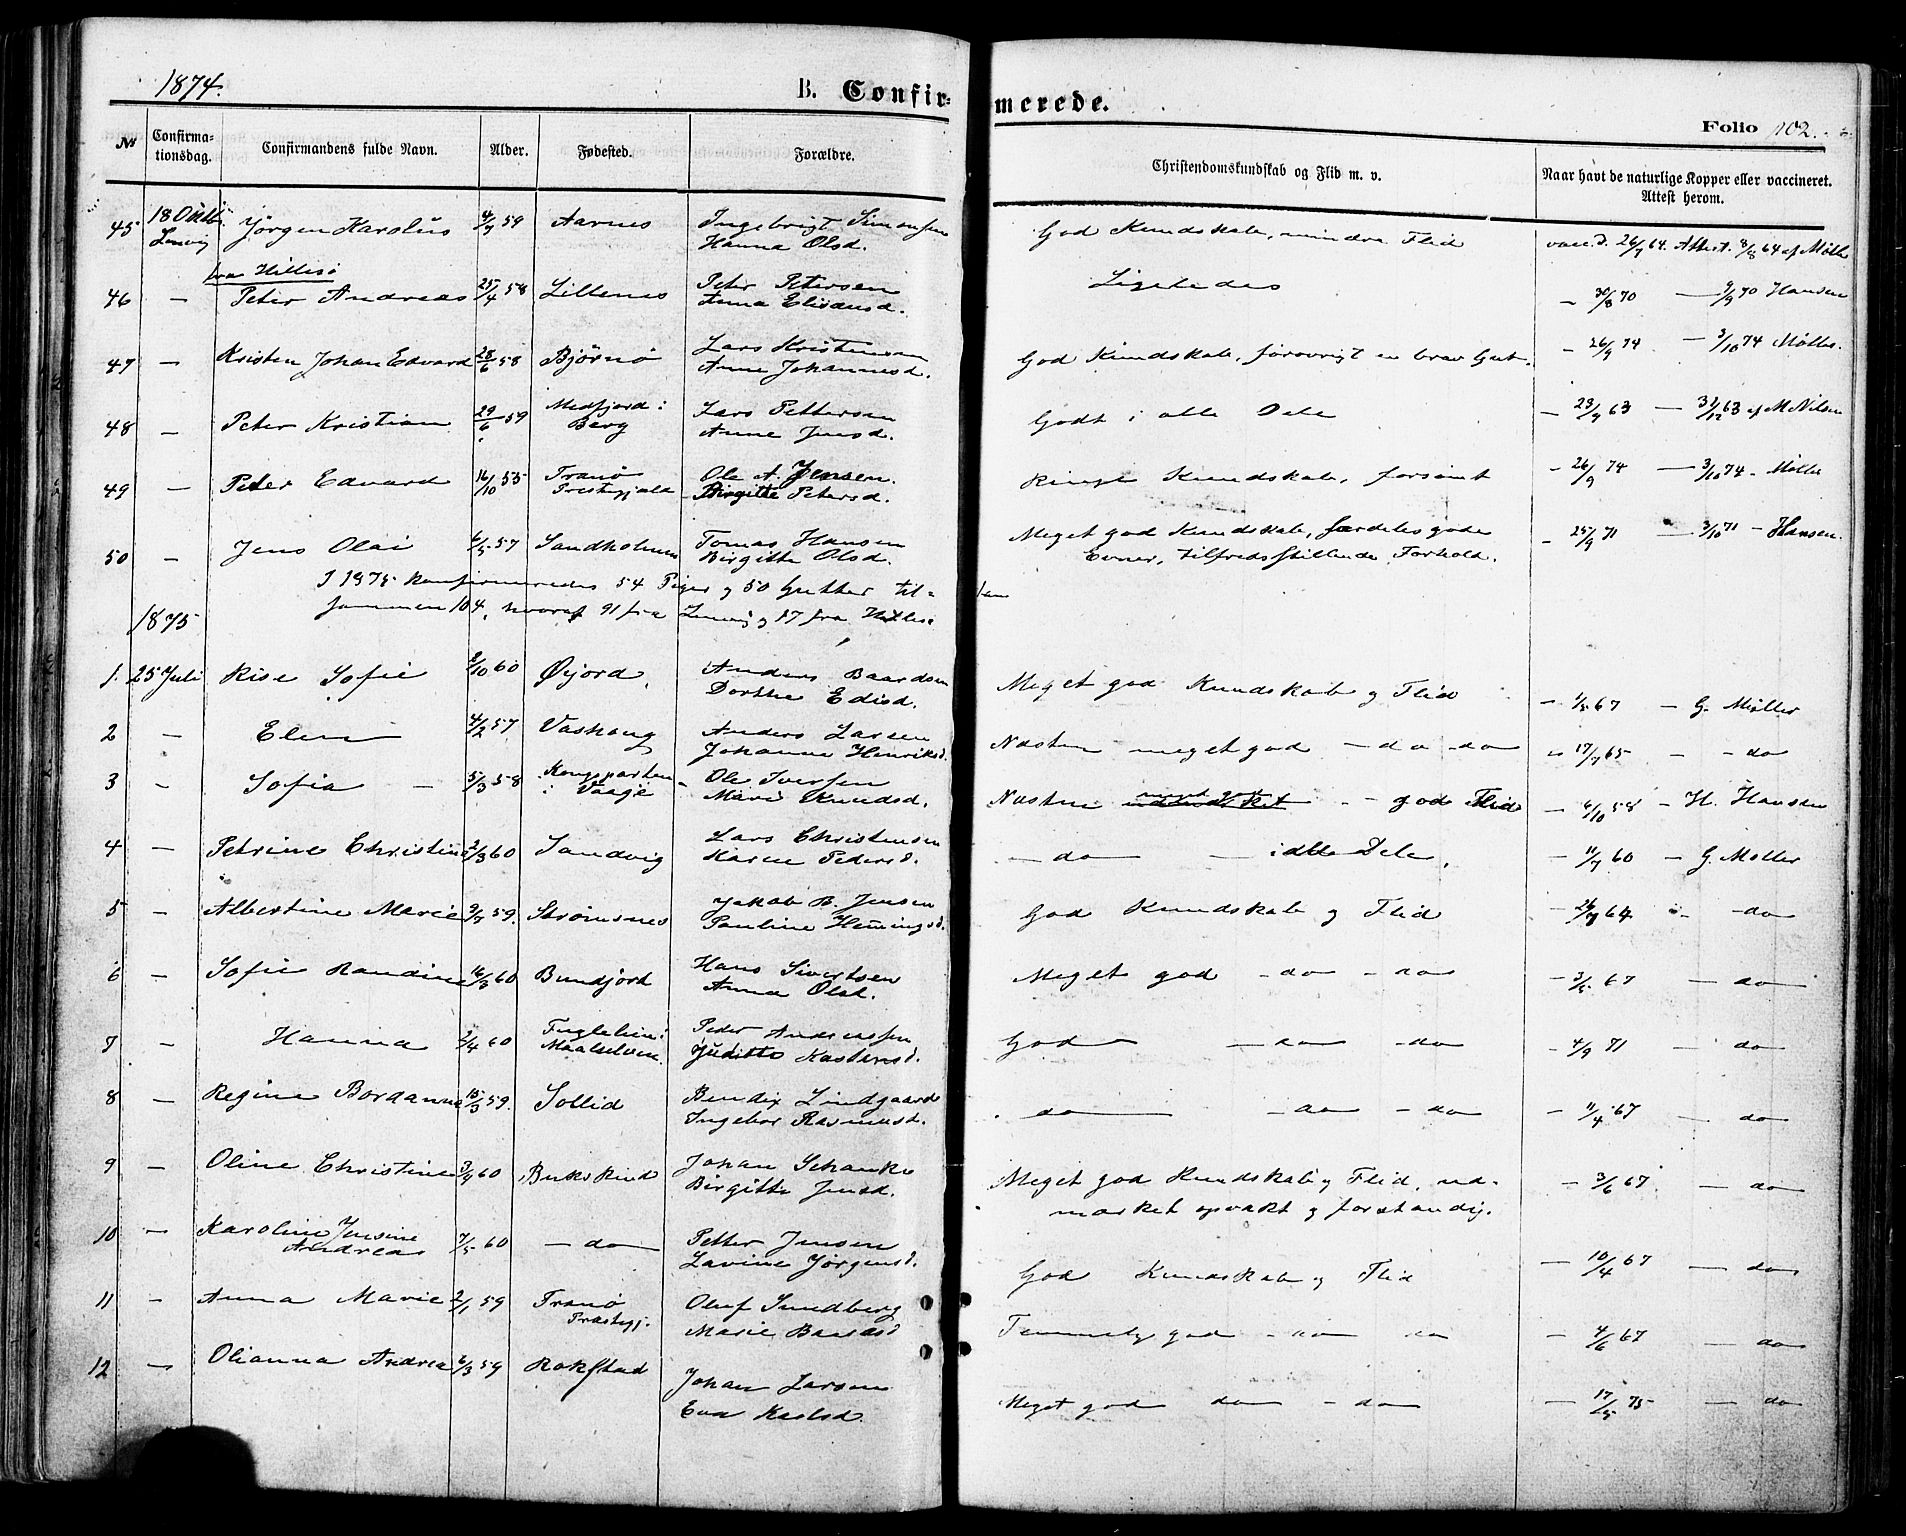 1874.
B. Confir-
merede.
Folio 102.
No
Confirma-
tionsdag.
Confirmandens fulde Navn.
Alder.
Fødested.
Forældre.
Christendomskundskab og Flid m. v.
Naar havt de naturlige Kopper eller vaccineret.
Attest herom.
45 18 Oktb. Jørgen Karolus 4/7 59 Aarnes Ingebrigt Simonsen God Kundskab, mindre Flid vacc. d. 26/7 64. Attest. 8/8 64 af Møller
Lenvig Hanna Olsd.
fra Hillesø
46 — Peter Andreas 25/4 58 Lillenes Peter Petersen Ligeledes — 30/8 70 — 9/9 70 Hansen
Anna Elisæusd.
47 — Kristen Johan Edvard 28/6 58 Bjørnø Lars Kristensen God Kundskab, forøvrigt en brav Gut. — 26/9 74 — 3/10 74 Møller.
Anne Johannesd.
48 — Peter Kristian 29/6 59 Medfjord i Lars Pettersen Godt i alle Dele — 23/9 63 — 31/12 63 af M Nilsen
Berg Anne Jensd.
49 — Peter Edvard 16/10 55 Tranø Ole A. Jensen. Ringe Kundskab, forsømt — 26/9 74 — 3/10 74 — Møller
Prestegjæld Birgitte Petersd.
50 — Jens Olai 6/5 57 Sandholmen Tomas Hansen Meget god Kundskab, særdeles gode — 25/9 71 — 3/10 71 — Hansen.
Birgitte Olsd. Evner, tilfredsstillende Forhold.
I 1875 konfirmeredes 54 Piger og 50 Gutter til-
sammen 104, hvoraf 91 fra Lenvig og 17 fra Hillesø
1875
1. 25 Juli Rise Sofie 2/10 60 Øyjord, Anders Baardsen Meget god Kundskab og Flid — 1/5 67 — G. Møller
Dorthe Edisd.
2 — Elen 4/2 57 Vashaug Anders Larsen Næsten meget god — do — do 17/7 65 — — do
Johanna Henriksd.
3 — Sofia — 5/3 58 Ole Iversen Næsten meget god — — god Flid — 6/10 58 — H. Hansen
i Vaage Marie Knudsd.
4 — Petrine Christine 2/3 60 Sandvig Lars Christensen — do — i alle Dele. — 11/7 60 — G. Møller
Karen Pedersd.
5 — Albertine Marie 9/7 59. Strømsnes Jakob B. Jensen God Kundskab og Flid — 26/7 64 — — do
Pauline Hemingsd.
6 — Sofie Randine 16/3 60 Bundjord Hans Sivertsen Meget god — do — do — 3/5 67 — do
Anna Olsd.
7 — Hanna 2/4 60 Fuglelien i Peder Andreassen God — do — do — 4/9 71 — do
Maalselven. Juditte Kastensd.
8 — Regine Bordanna 18/3 59. Sollid Bendix Lindgaard do — do — do — 11/4 67 — do
Ingebor Rasmusd.
9 — Oline Christine 3/4 60 Bukskind Johan Schanke Meget god Kundskab og Flid, ud- — 3/6 67 — do
Birgitte Jensd. mærket opvakt og forstandig.
10 — Karoline Jensine 7/5 60 — do — Petter Jensen God Kundskab og Flid — 10/4 67 — do
Andrea Lavine Jørgensd.
11 — Anna Marie 2/1 59 Tranø Oluf Sundberg Temmelig god — do — do — 4/6 67 — do
Præstegj. Marie Baarsd
12 — Olianna Andrea 6/3 59 Rokstad Johan Larsen Meget god do — do — 17/5 75 — do
Eva Karlsd.